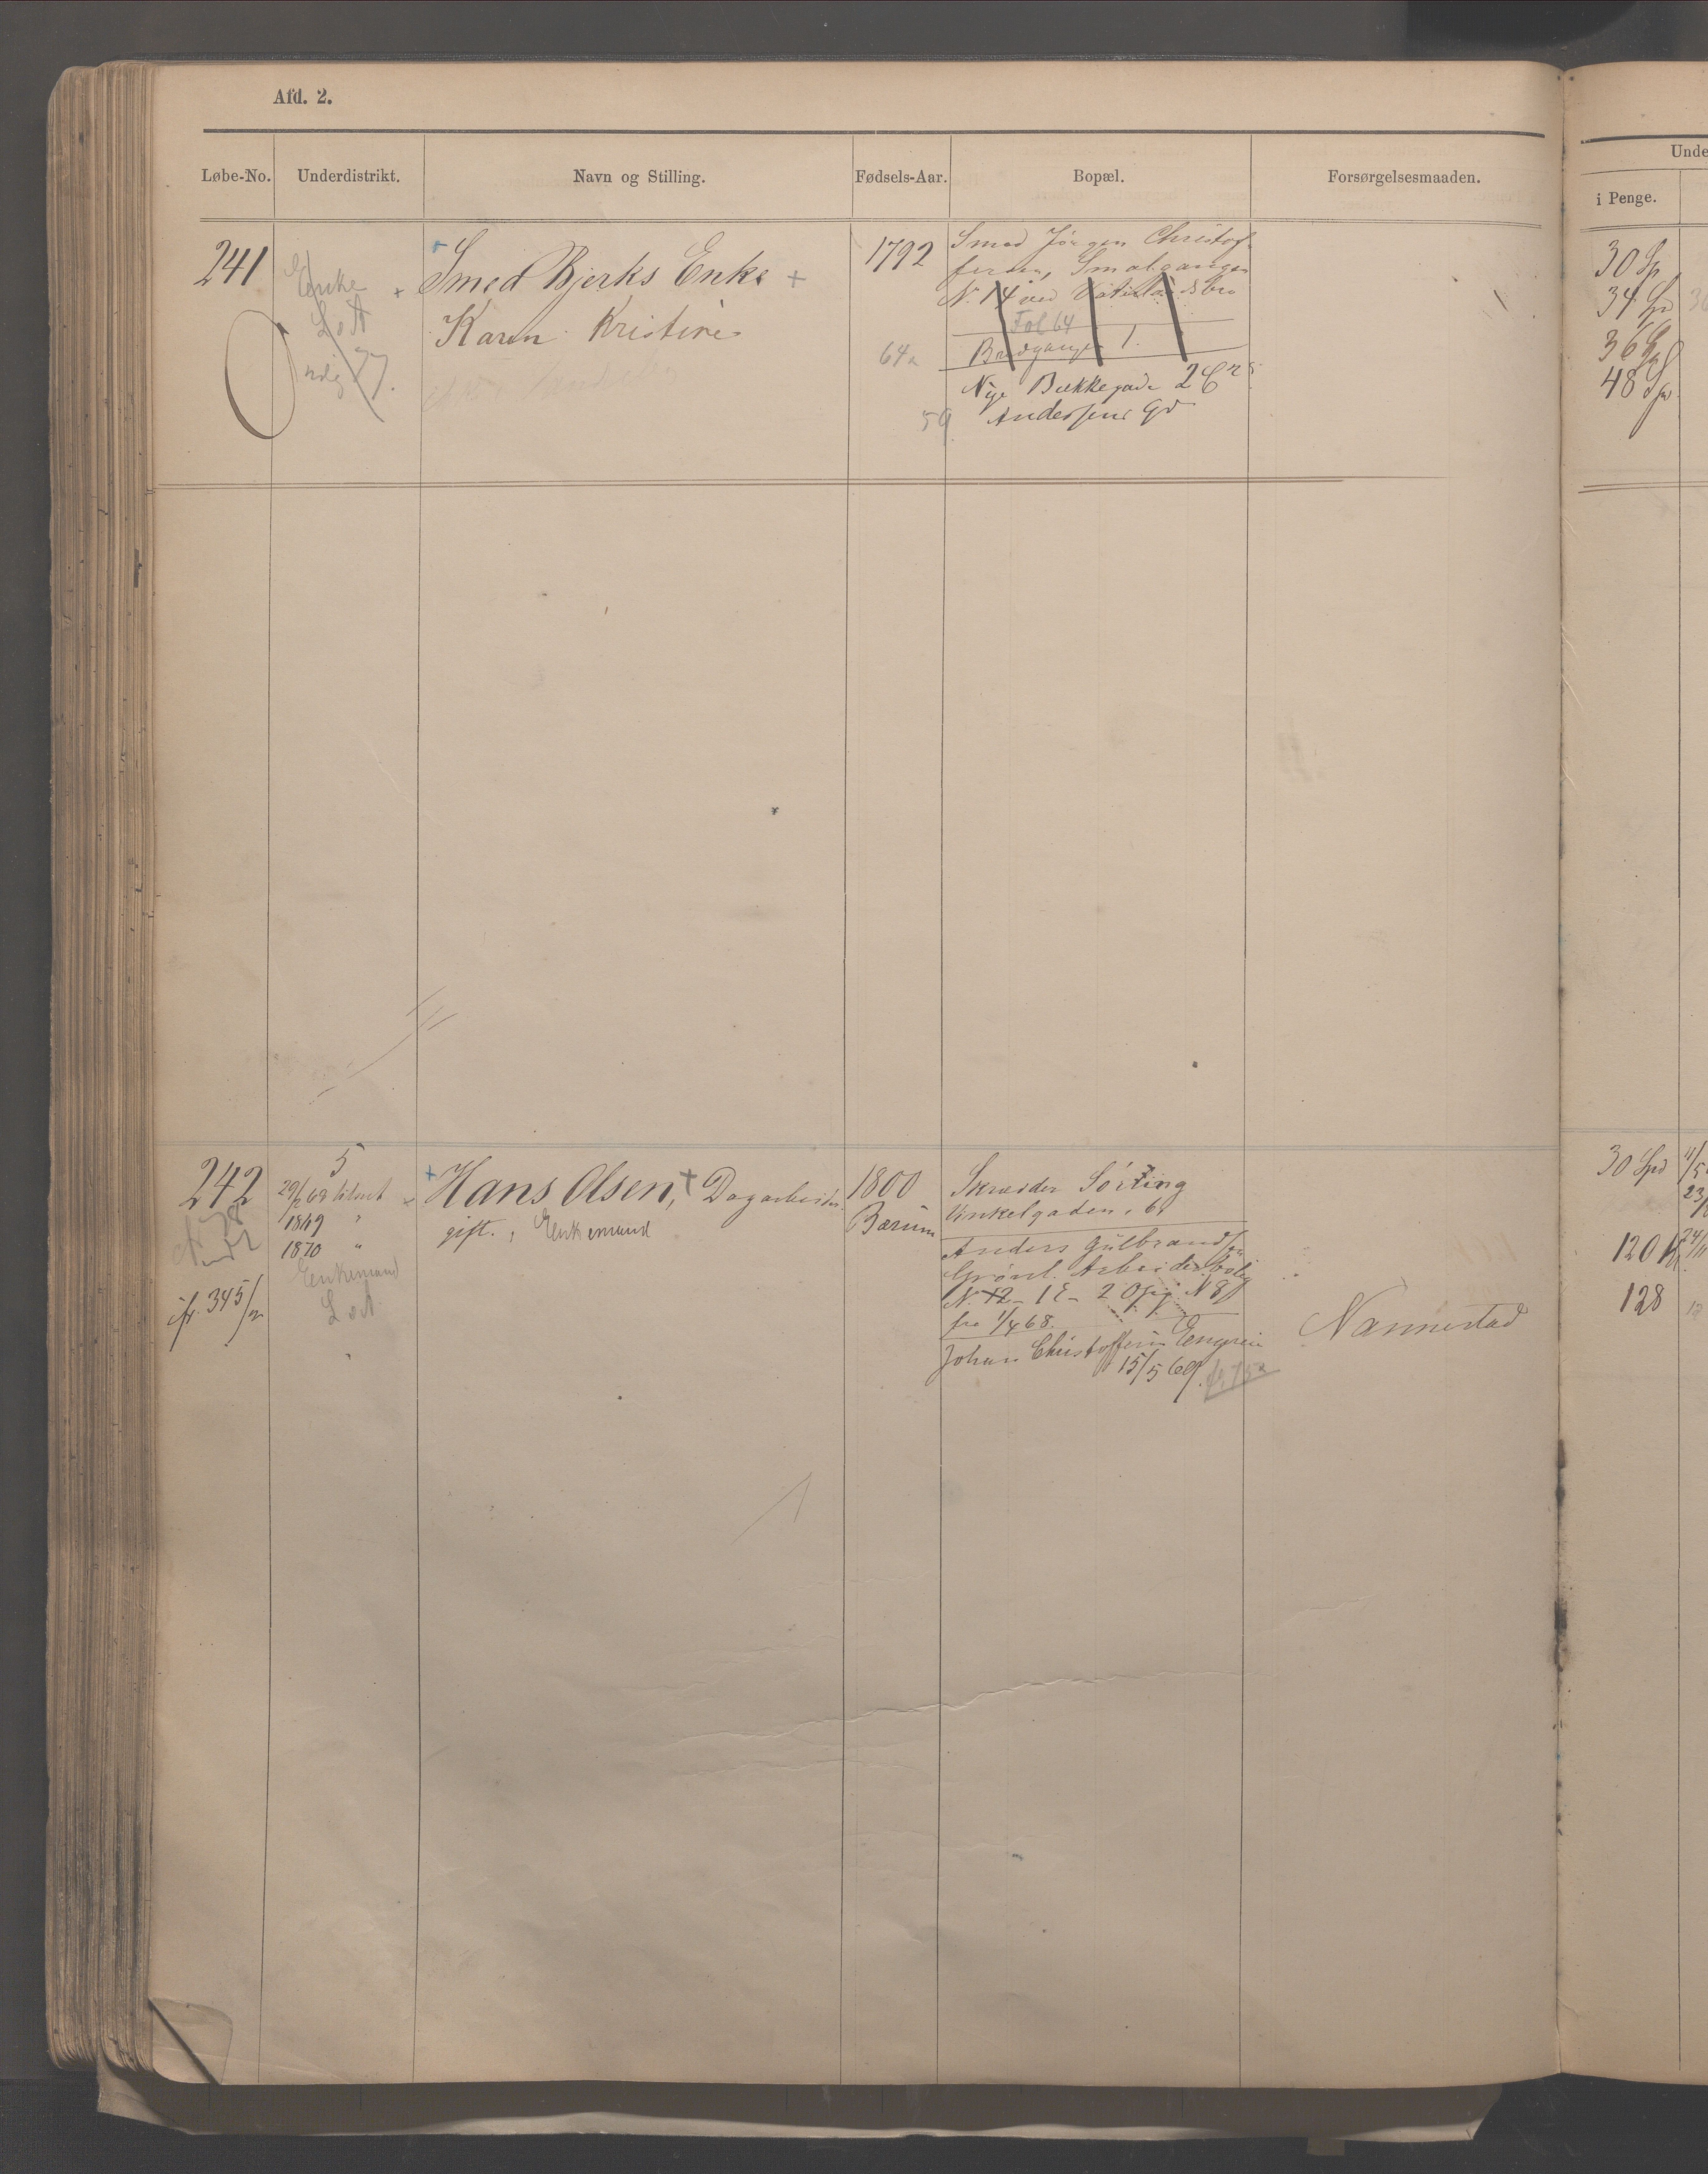 Afd. 2.
Løbe-No. Underdistrikt. Navn og Stilling. Fødsels-Aar. Bopæl. Forsørgelsesmaaden.
Unde
i Penge.
241
Enke
L o A
Smed Bjerks Enke +
Karen Kristine
1792
64a
59
Smed Jörgen Christof-
fersen, Smalgangen
N. 14 ved Vaterlandsbro
Fol 64
Bredgangen 1.
Nye Bækkegade 2
Andersens Gd
30 Sp
34 Spd
36 Sp
48 Sp
242
jfr. 345/72
5
1869 "
1870 "
Enkemand
L o A.
+ Hans Olsen, + Dagarbeider.
gift. , Enkemand
1800
Bærum
Skræder Sörting
Vinkelgaden
Anders Gulbrandsen
Grönl. Arbeiderbolig
N. 12 - 1 E - 2 Opg. N 8
fra 1/4 68.
Johan Christoffersen Enger
15/5 69.
Nannestad
30 Spd
120
128